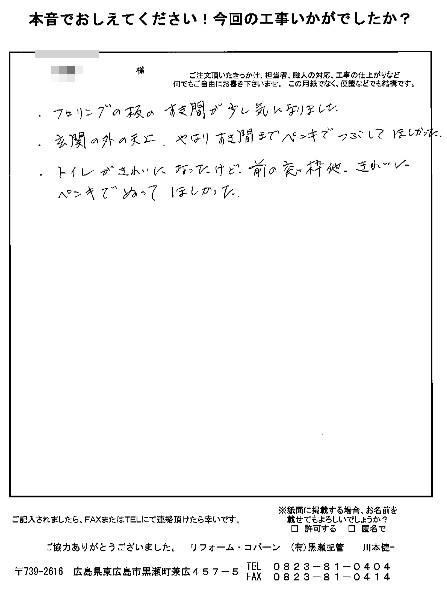 本音でおしえてください！今回の工事いかがでしたか？
様
ご注文頂いたきっかけ、担当者、職人の対応、工事の仕上がりなど
何でもご自由にお書き下さいませ。この用紙でなく、便箋などでも結構です。
・フローリングの板のすき間が少し気になりました
・玄関の外の天上、やはりすき間までペンキでつぶしてほしかった。
・トイレがきれいになったけど、前の窓枠他、きれいに
ペンキでぬってほしかった。
ご記入されましたら、FAXまたはTELにて連絡頂けたら幸いです。
※紙面に掲載する場合、お名前を
載せてもよろしいでしょうか？
□ 許可する □ 匿名で
ご協力ありがとうございました。 リフォーム・コバーン (有)黒瀬配管 川本健一
〒739-2616 広島県東広島市黒瀬町兼広457-5 TEL 0823-81-0404
FAX 0823-81-0414